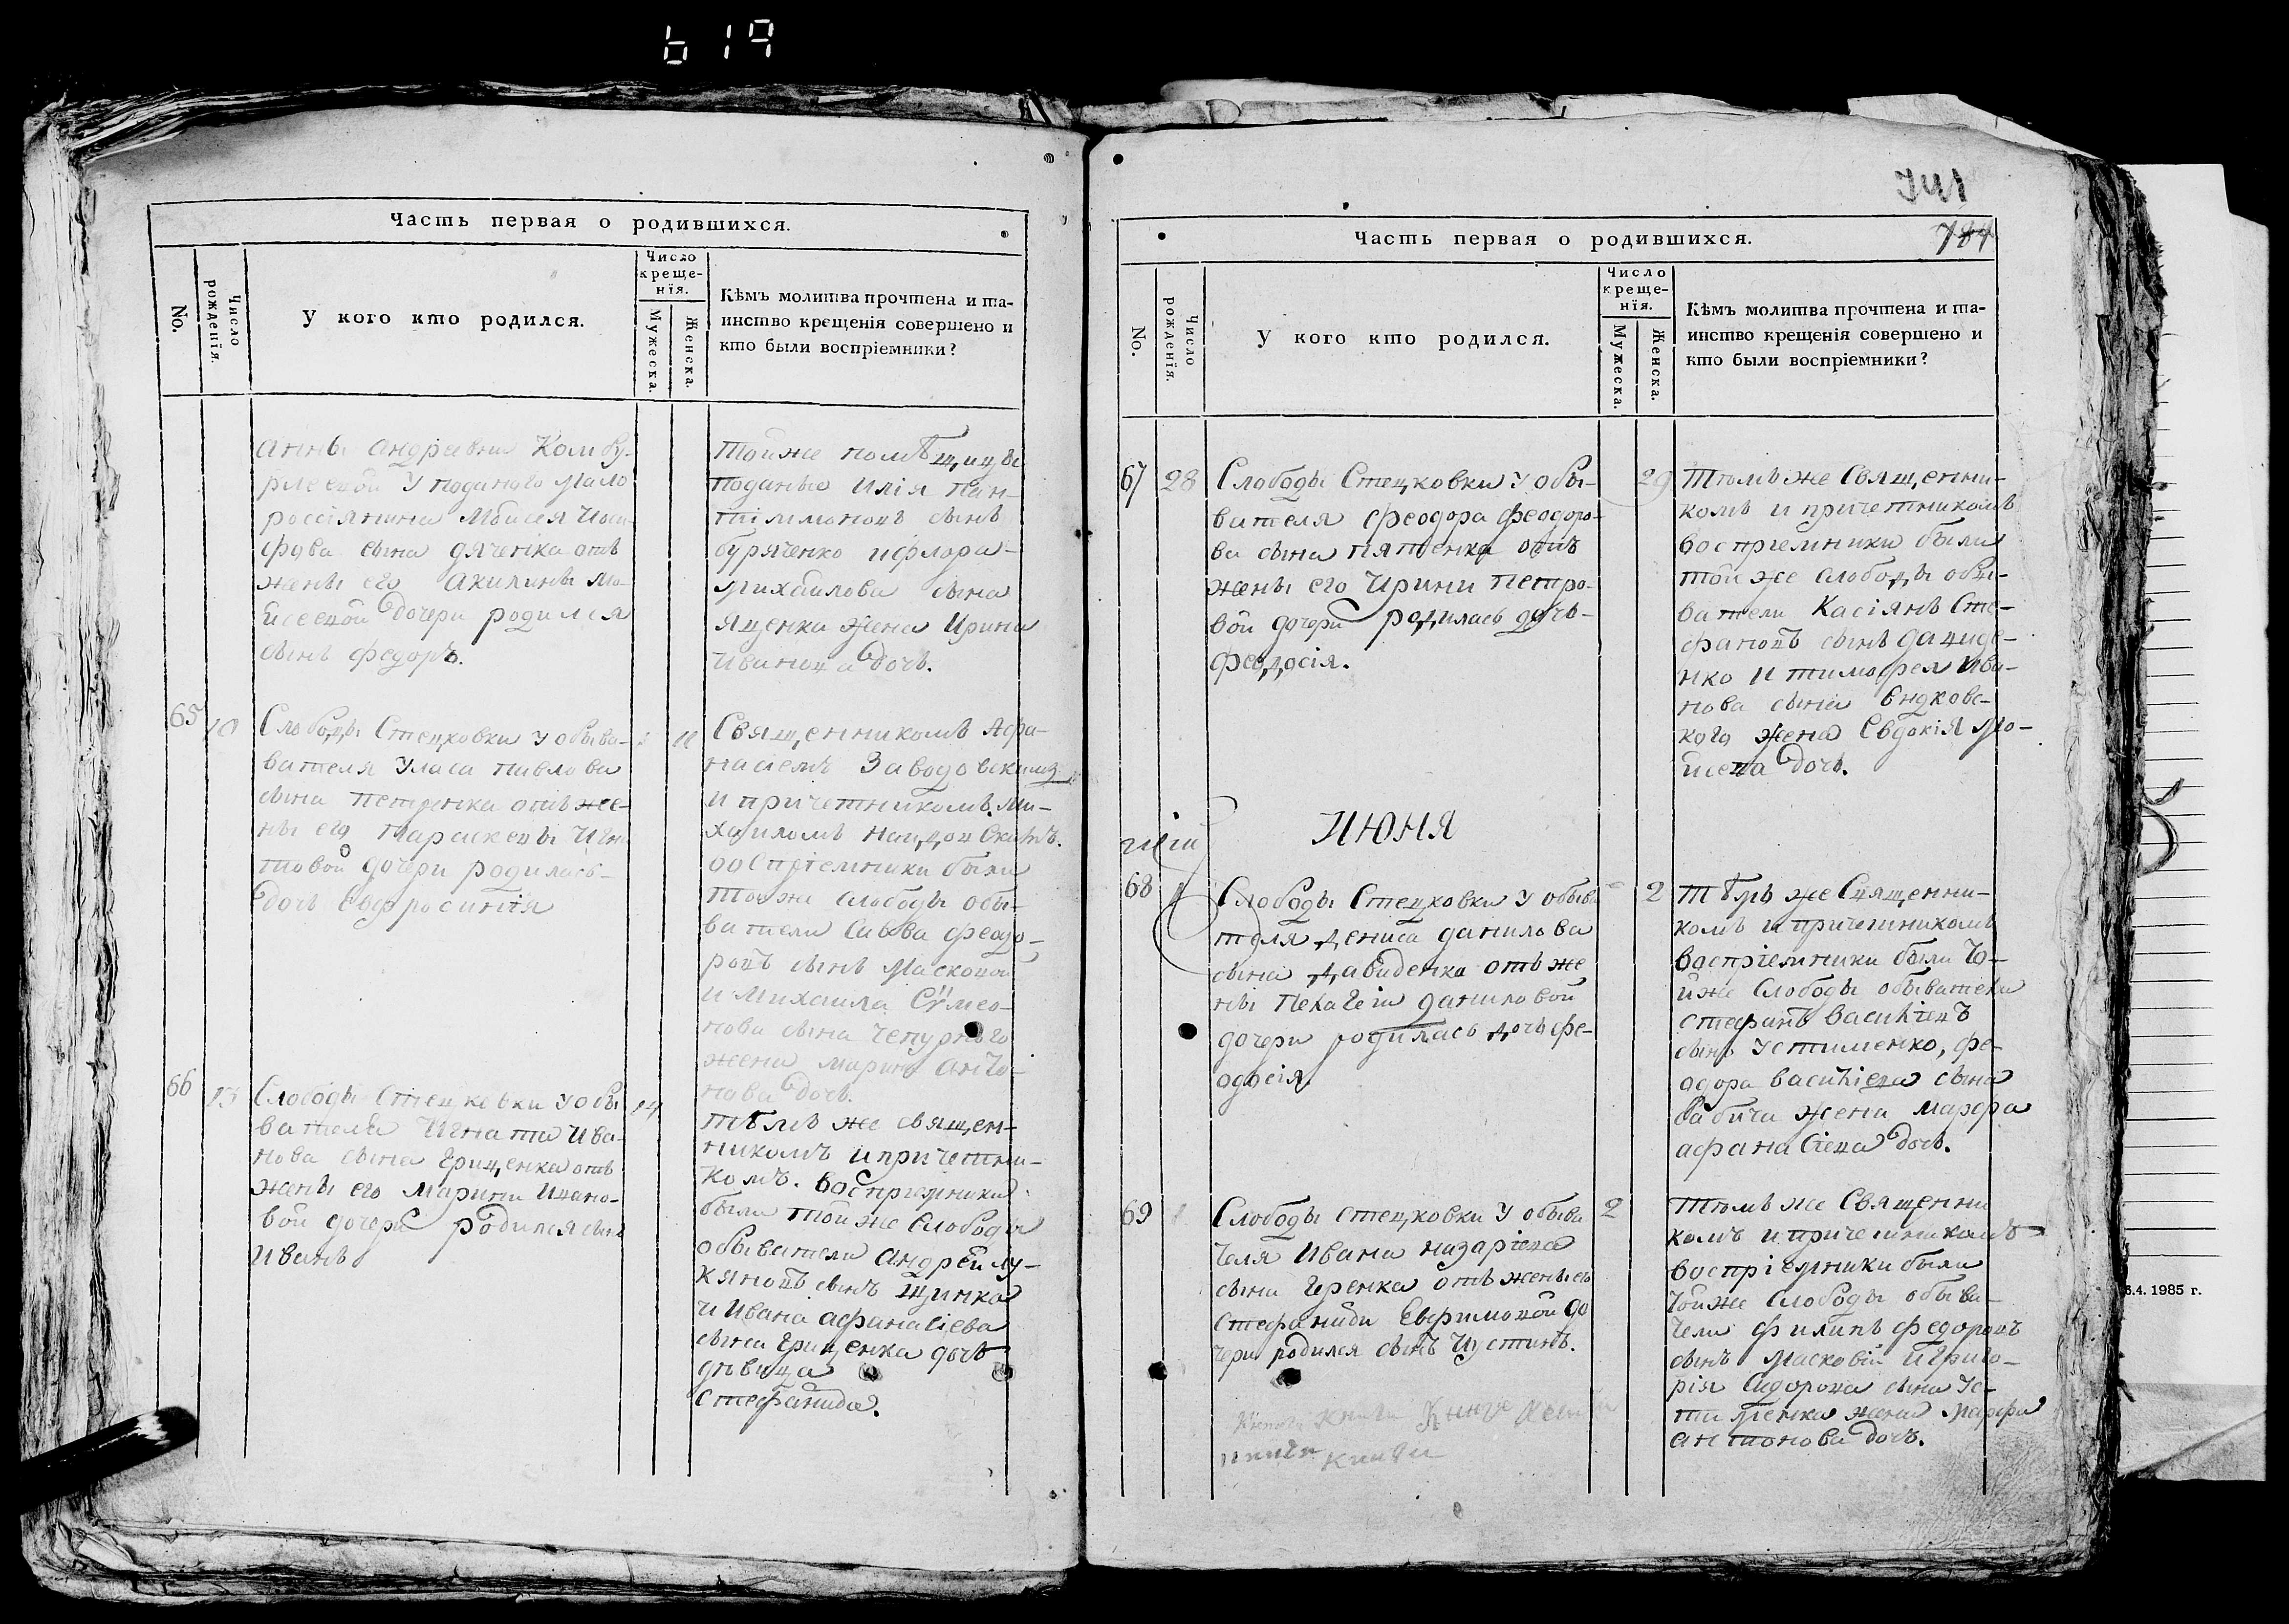 619
Часть первая о родившихся.
No.
Число рожденія.
У кого кто родился.
Число
креще-
нія.
Мужеска.
Женска.
Кѣмъ молитва прочтена и та-
инство крещенія совершено и
кто были воспріемники?
анны андреевны Комбу-
рлеевой У поданого Мало
россіянина Моисея Иоси
фова сына дяченка отъ
жены его Акилины Мо-
исеевой дочери родился
сынъ федоръ.
тойже помѣщицы
поданые Илія Пан-
тілимоновъ сынъ
буряченко и флора
михаилова сына
ященка жена Ирина
иванова дочь.
65
10
Слободы Стецковки у обыва-
вателя Уласа павлова
сына петренка отъ же-
ны его параскевы Игна
товой дочери родилась
дочь Евфросинія
11
Священникомъ Афа-
насіемъ Заводовскимъ
и причетникомъ Ми-
хаиломъ
воспріемники были
тойже слободы обы-
ватели Савва феодо-
ровъ сынъ Масковой
и Михаила Сѵмео-
нова сына Чепурного
жена марина анто-
нова дочь.
66
13
Слободы Стецковки у обы
вателя Игната Ива-
нова сына грищенка отъ
жены его Марины Ивано-
вой дочери родился сынъ
Иванъ
14
тѣмъ же священ-
никомъ и причетни-
комъ. воспріемники
были той же слободы
обыватели андрей лу-
кяновъ сынъ щинка
и Ивана афанасіева
сына грищенка дочь
дѣвица
Стефанида.
741
784
Часть первая о родившихся.
No.
Число рожденія.
У кого кто родился.
Число
креще-
нія.
Мужеска.
Женска.
Кѣмъ молитва прочтена и та-
инство крещенія совершено и
кто были воспріемники?
67
28
Слободы Стецковки у обы-
вателя феодора феодоро-
ва сына пятенка отъ
жены его Ирины петро-
вой дочери родилась дочь
феодосія.
29
Тѣмъ же Священни-
комъ и причетникомъ
воспріемники были
той же слободы обы-
ватели Касіянъ Сте-
фановъ сынъ давиде-
нко и тимофея Ива-
нова сына
кого жена Евдокія Мо-
исеева дочь.
ИЮНЯ
68
1
Слободы Стецковки у обыва
теля дениса данилова
сына давиденка отъ же
ны пелагеи даниловой
дочери родилась дочь фе-
одосія.
2
тѣмъ же Священни-
комъ и причетникомъ
воспріемники были то-
йже слободы обыватели
стефанъ василіевъ
сынъ устименко, фе-
одора василіева сына
бабича жена марфа
афанасіева дочь.
69
1
Слободы стецковки у обыва
теля Ивана назаріева
сына гренка отъ жены его
стефаниды Евфимовой до
чери родился сынъ Иустинъ.
2
тѣмъ же Священни
комъ и причетникомъ
воспріемники были
тойже слободы обыва-
тели филипъ федоровъ
сынъ Масковій и григо-
рія сидорова сына Ус-
тименка жена марфа
антонова дочь.
книги
книги
6.4. 1985 г.